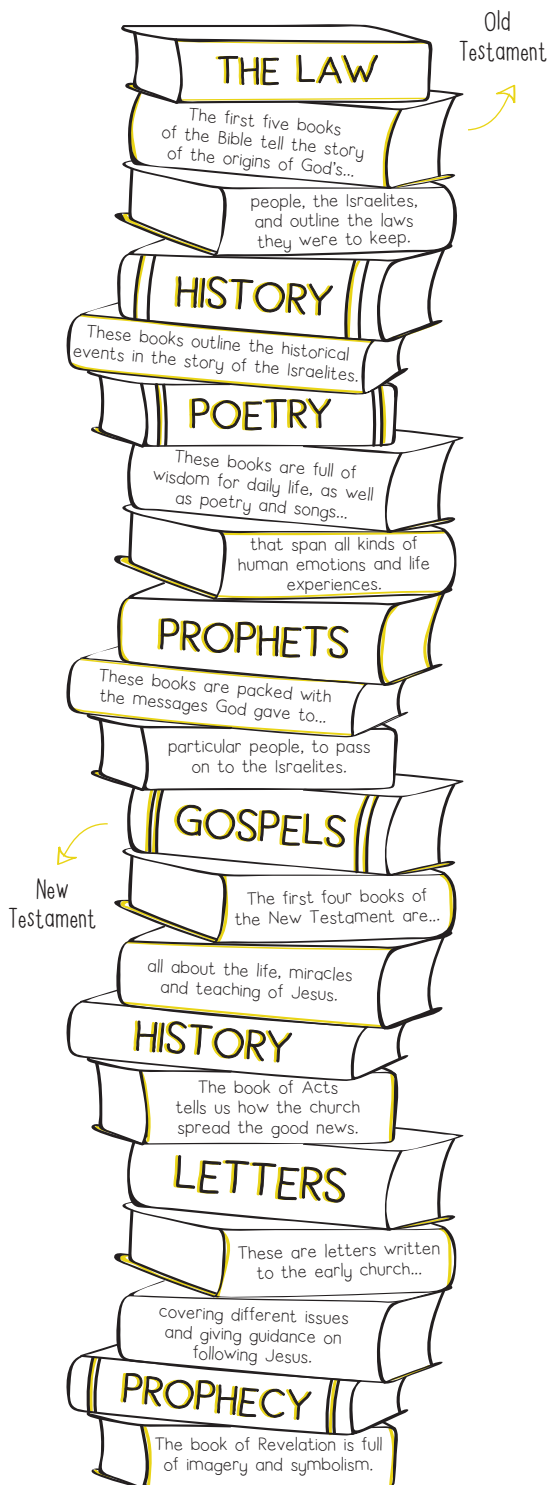 Old
Testament
THE LAW
The first five books
of the Bible tell the story
of the origins of God's...
people, the Israelites,
and outline the laws
they were to keep.
HISTORY
These books outline the historical
events in the story of the Israelites.
POETRY
These books are full of
wisdom for daily life, as well
as poetry and songs...
that span all kinds of
human emotions and life
experiences.
PROPHETS
These books are packed with
the messages God gave to...
particular people, to pass
on to the Israelites.
GOSPELS
New
Testament
The first four books of
the New Testament are...
all about the life, miracles
and teaching of Jesus.
HISTORY
The book of Acts
tells us how the church
spread the good news.
LETTERS
These are letters written
to the early church...
covering different issues
and giving guidance on
following Jesus.
PROPHECY
The book of Revelation is full
of imagery and symbolism.